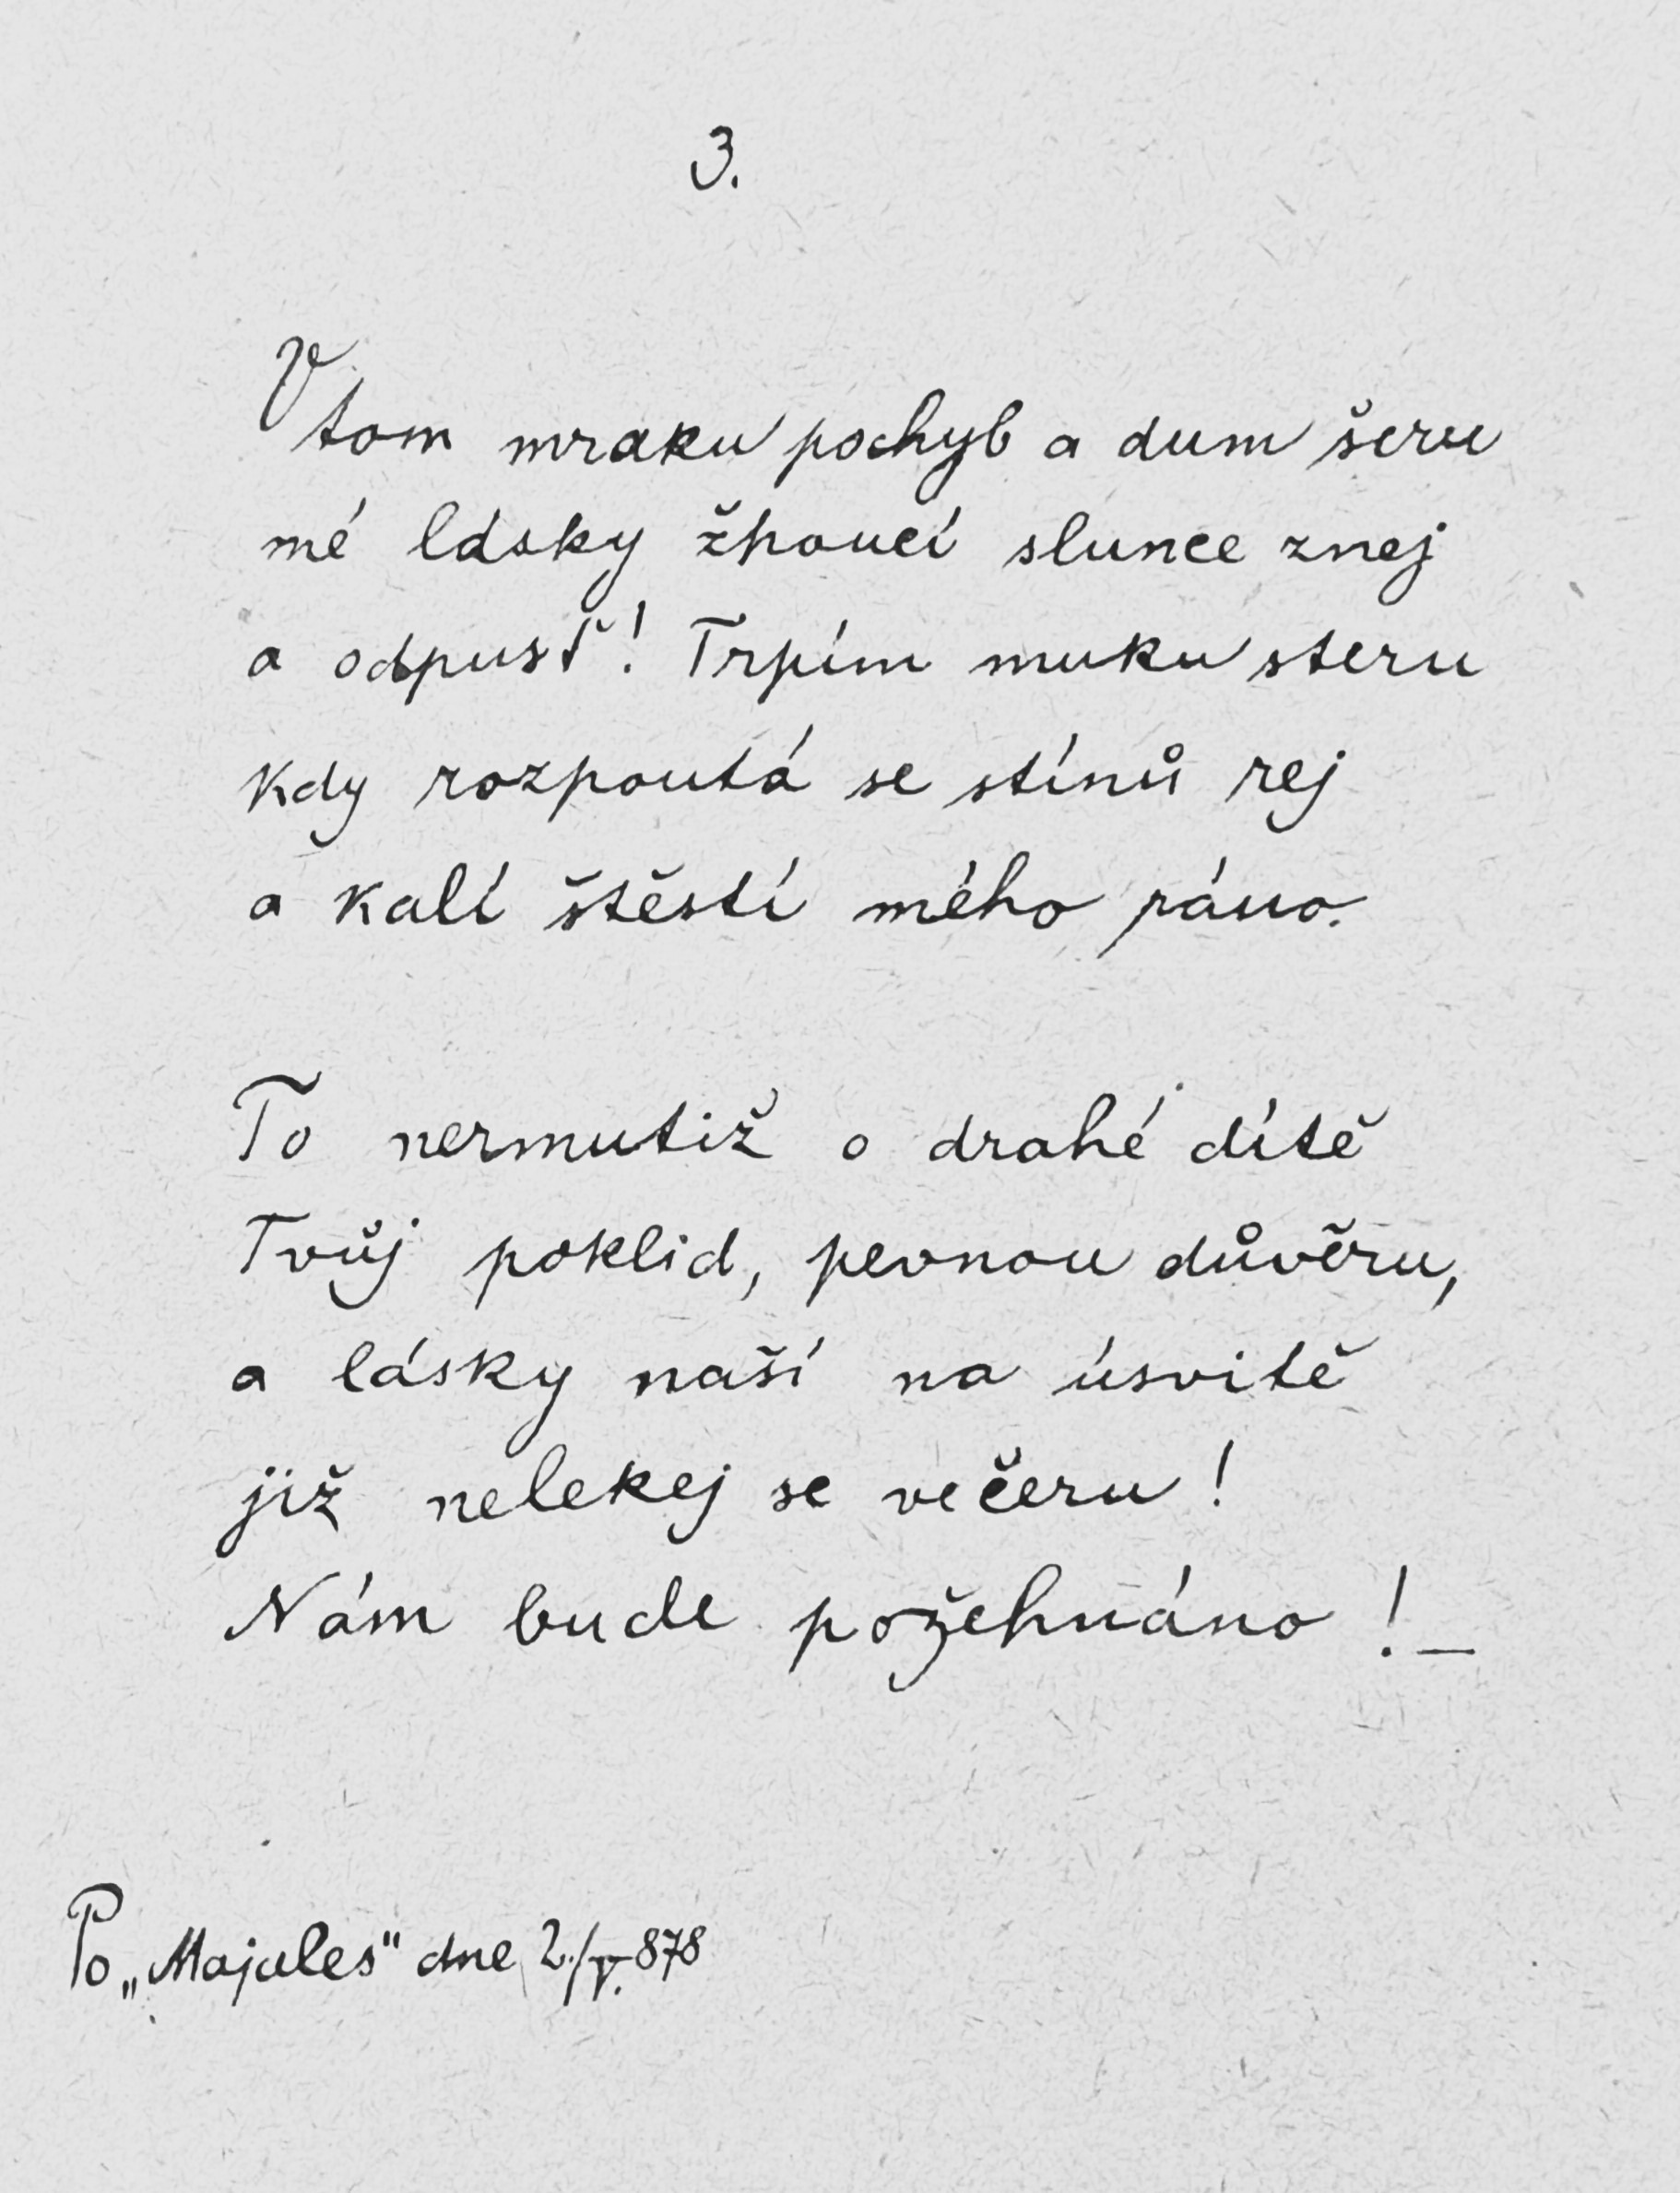 3.
V tom mraku pochyb a dum šeru
mé lásky žhoucí slunce znej
a odpusť! Trpím muku steru
kdy rozpoutá se stínů rej
a kalí štěstí mého ráno.
To nermutiž o drahé dítě
Tvůj poklid, pevnou důvěru,
a lásky naší na úsvitě
již nelekej se večeru!
Nám bude požehnáno! —
Po „Majales" dne 2./V. 878